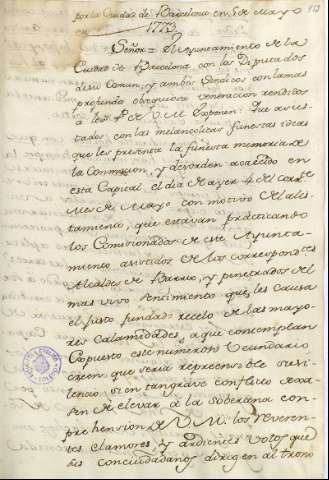 por la Ciudad de Barcelona en 5 de Mayo
1773
Señor = El Ayuntamiento de la
Ciudad de Barcelona, con los Diputados
de su Comun, y ambos Sindicos con la mas
profunda obsequiosa veneracion rendidos
a los P. de V. M. Exponen: Que
tados con las melancolicas funestas ideas
que les presenta la funesta memoria de
la Commosion, y desorden acaecido en
esta Capital el dia de ayer 4 del
Mes de Mayo con motivo del alis-
tamiento, que estavan practicando
los Comisionados de este Ayunta-
miento asistidos de los correspondtes
Alcaldes de Barrio, y penetrados del
mas vivo sentimiento que les causa
el justo fundado recelo de las mayo-
res Calamidades, a que contemplan
Expuesto este numeroso Vecindario
creen que seria reprensible su si-
lencio, si en tan grave conflicto
de elevar a la soberana com-
prehension de V. M. los reveren-
tes clamores, y ardientes votos que
sus conciudadanos dirigen al trono